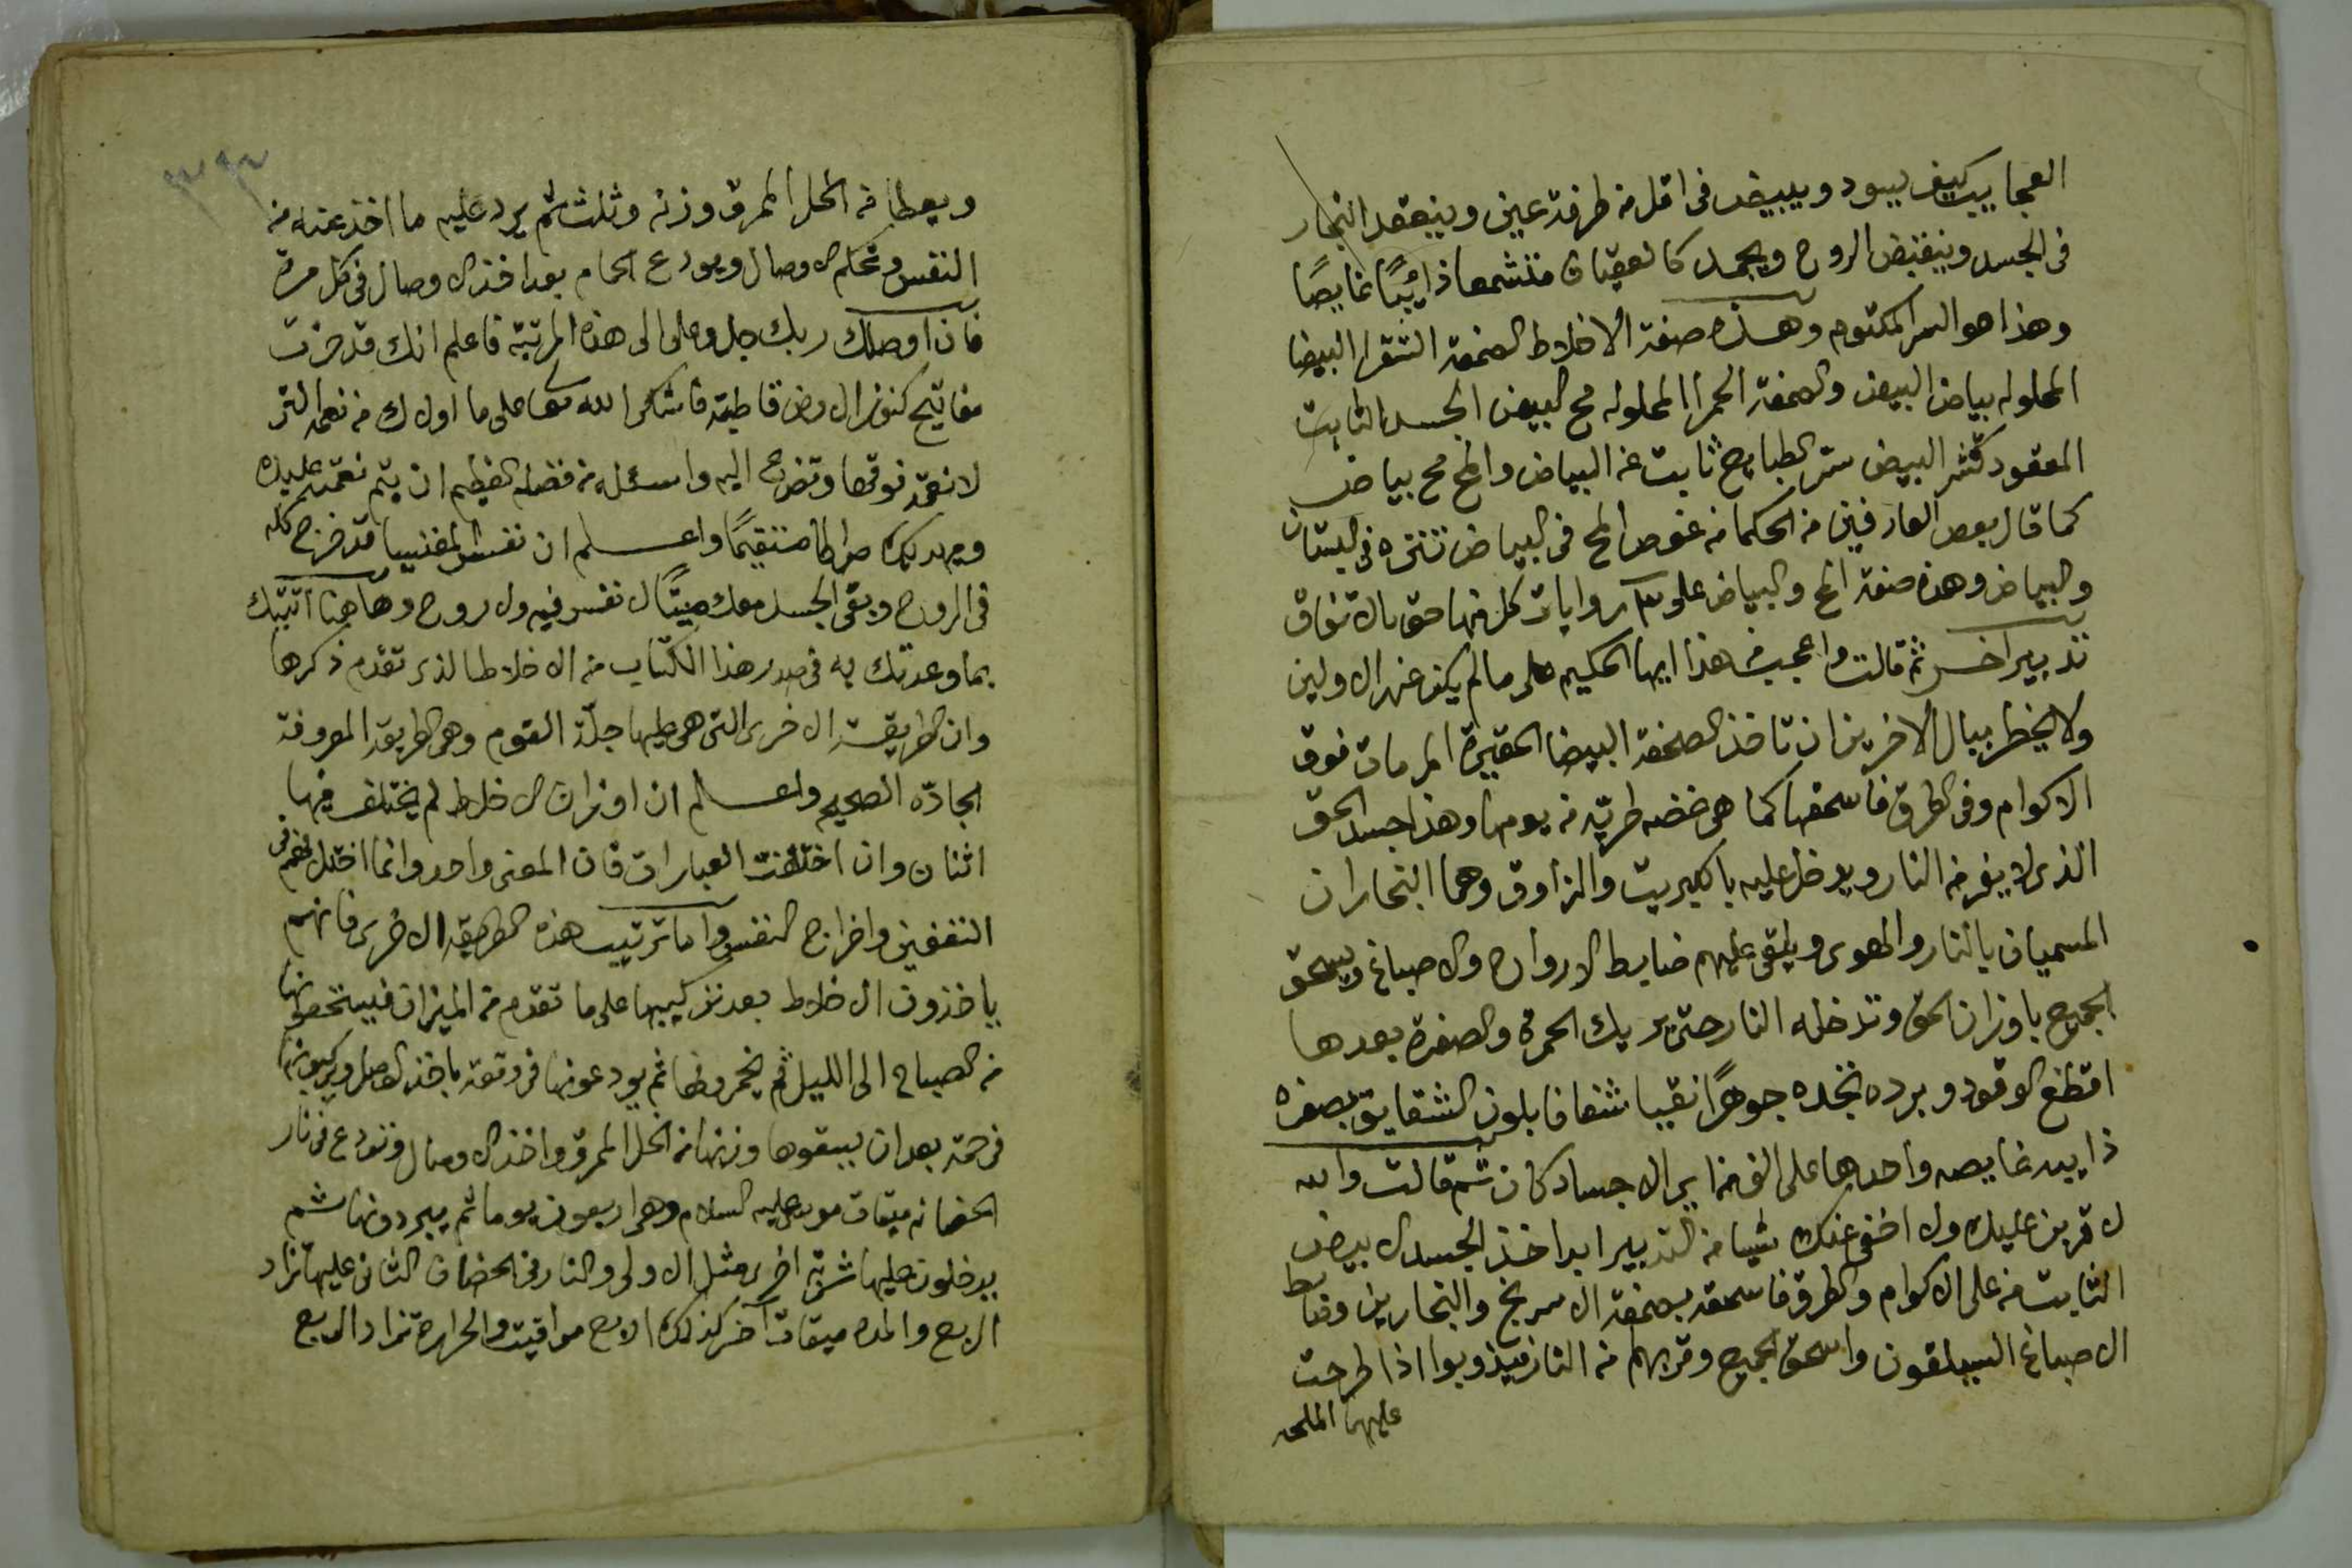 العجايب كيف يسود ويبيض فى اقل من طرفة عين وينعقد النجار
فى الجسد وينقبض الروح ويجمد كالعقيان منشمعا ذائبًا غايصًا
وهذا هو السر المكتوم وهذه صفة الاخلاط الصمغة الشقرا البيضا
المحلوله بياض البيض والصمغة الحمرا المحلوله مح البيض الجسد الثابت
المعقود كقشر البيض ستر الطبايع ثابت عن البياض والمح مح بياض
كما قال بعض العارفين من الحكما من غوص المح فى البياض تنتزه فى البستان
والبياض وهذه صفة المح والبياض على روايات كل منها حق بالاتفاق
تدبير اخر ثم قالت واعجب من هذا ايها الحكيم على ما لم يكن عند الاولين
ولا يخطر ببال الاخرين ان تاخذ الصمغة البيضا الحقيرة المرمات فوق
الاكوام وفى الطرق فاسحقها كما هى غضه طريّه من يومها وهذا جسد الحق
الذى لا يفر من النار ويدخل عليه باكبريت والزاوق وهما النجاران
المسميان بالنار والهوى ويلقى عليهم ضابط الارواح والاصباغ ويسحق
الجميع باوزان الحق وتدخله النار حتى يريك الحمرة والصفرة بعدها
اقطع الوقود وبرده تجده جوهرًا نقيا شفافا بلون الشقايق بصفره
ذايبه غايصه واحدها على الف من اى الاجساد كان ثم قالت والله
لا قربن عليك ولا اخفى عنك شيا من التدبير ابدا خذ الجسد الابيض
الثابت من على الاكوام والطرق فاسحقه بصمغة الاسرنج والنجارين وضابط
الاصباغ السيلقون واسحق الجميع وقربهم من النار فيذوبوا اذا طرحت
عليها الملح
ويعطا من الخل المرق وزنه وثلث ثم يرد عليه ما اخذ عنه من
النفس وتحكم الاوصال ويودع الحمام بعد اخذ الاوصال فى كل مرة
فان اوصلك ربك جل وعلى الى هذه المرتبة فاعلم انك قد حزت
مفاتيح كنوز الارض قاطبة فاشكر الله تعا على ما اولاك من نعمه التى
لا نعمة فوقها وتضرع اليه واسئله من فضله العظيم ان يتم نعمته عليك
ويهديك صراطا مستقيمًا واعلم ان نفس المغنيسيا قد خرج كله
فى الروح وبقى الجسد معك ميتًا لا نفس فيه ولا روح وهاهنا اتيتك
بما وعدتك به فى صدر هذا الكتاب من الاخلاط الذى تقدم ذكرها
وان الطريقة الاخرى التى هى عليها جلّة القوم وهى الطريق المعروفة
الجادّه الصحيحه واعلم ان اوزان الاخلاط لم يختلف فيها
اثنان وان اختلفت العبارات فان المعنى واحد وانما اختلافهم فى
التعفين واخراج النفس واما ترتيب هذه الطريقه الاخرى فانهم
ياخذون الاخلاط بعد تركيبها على ما تقدم من الميزان فيسحقونها
من الصباح الى الليل ثم يخمرونها ثم يودعونها فى وقته باخذ الوصل ويركبونها
فى حمة بعد ان يسقوها وزنها من الخل المرق واخذ الاوصال وتودع فى نار
الحضانه ميقات موسى عليه السلام وهى اربعون يوما ثم يبردونها ثم
يدخلون عليها شربة اخرى مثل الاولى والنار فى الحضان الثانى عليها تزاد
الربع والمده ميقات آخر كذلك الاربع مواقيت والحرارة تزاد الربع